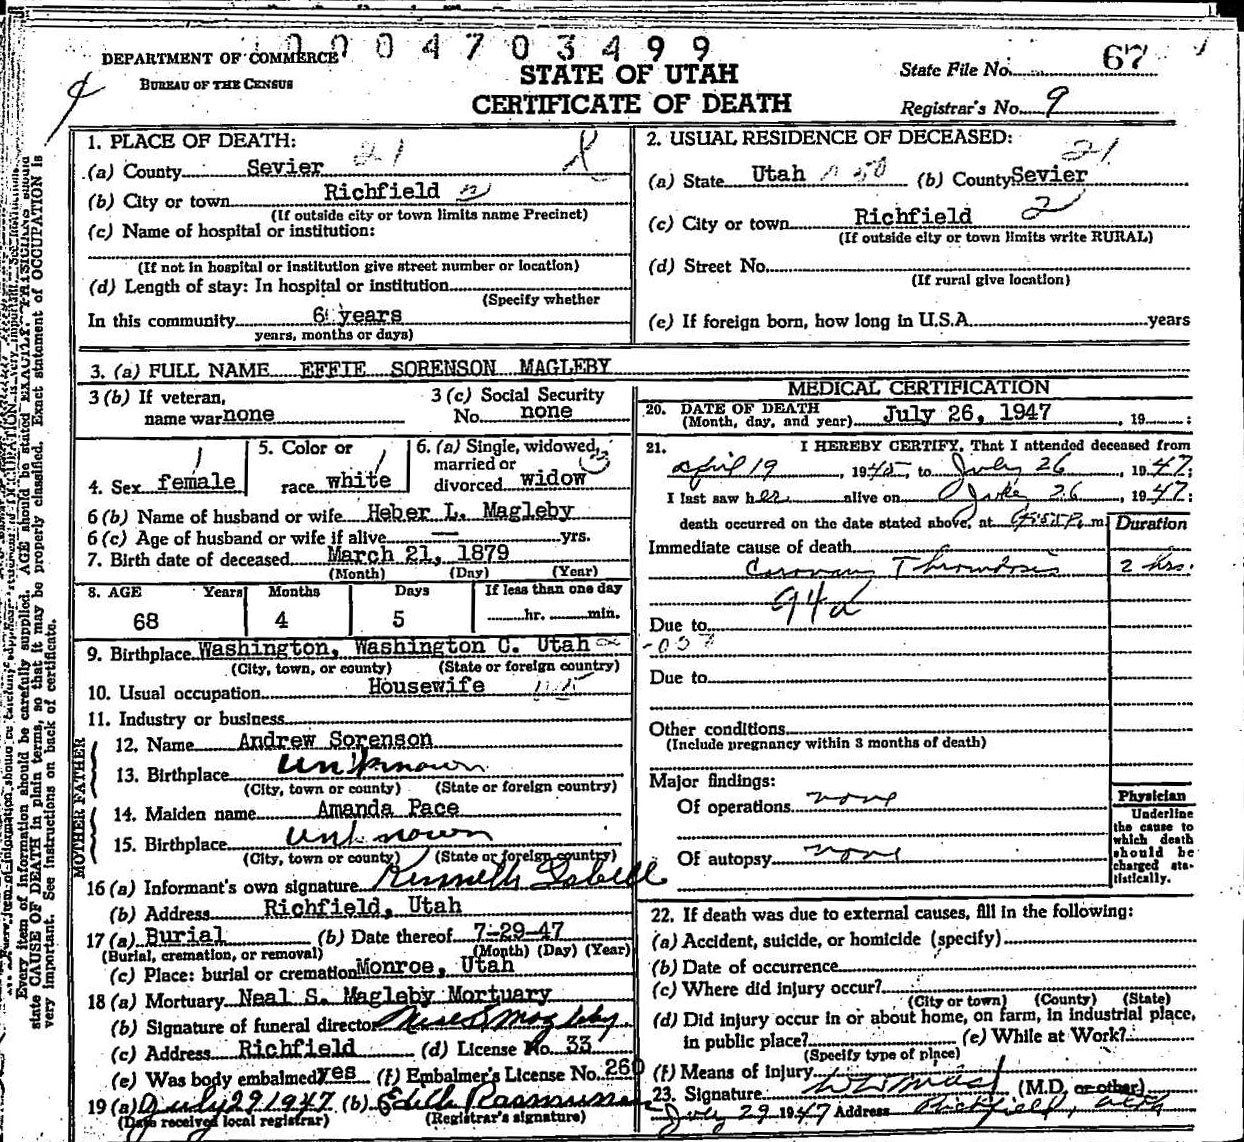 0004703499
DEPARTMENT OF COMMERCE
BUREAU OF THE CENSUS
STATE OF UTAH
CERTIFICATE OF DEATH
State File No. 67
Registrar's No. 9
1. PLACE OF DEATH: 21
(a) County Sevier
(b) City or town Richfield 2
(If outside city or town limits name Precinct)
(c) Name of hospital or institution:
(If not in hospital or institution give street number or location)
(d) Length of stay: In hospital or institution
(Specify whether
In this community 6 years
years, months or days)
2. USUAL RESIDENCE OF DECEASED: 21
(a) State Utah (b) County Sevier
(c) City or town Richfield 2
(If outside city or town limits write RURAL)
(d) Street No.
(If rural give location)
(e) If foreign born, how long in U.S.A. years
3. (a) FULL NAME EFFIE SORENSON MAGLEBY
3 (b) If veteran,
name war none
3 (c) Social Security
No. none
4. Sex female
5. Color or
race white
6. (a) Single, widowed,
married or
divorced widow
6 (b) Name of husband or wife Heber L. Magleby
6 (c) Age of husband or wife if alive — yrs.
7. Birth date of deceased March 21, 1879
(Month) (Day) (Year)
8. AGE Years Months Days If less than one day
68 4 5 hr. min.
9. Birthplace Washington, Washington C. Utah
(City, town, or county) (State or foreign country)
10. Usual occupation Housewife
11. Industry or business
FATHER
12. Name Andrew Sorenson
13. Birthplace unknown
(City, town or county) (State or foreign country)
MOTHER
14. Maiden name Amanda Pace
15. Birthplace unknown
(City, town or county) (State or foreign country)
16 (a) Informant's own signature Kenneth Isbell
(b) Address Richfield, Utah
17 (a) Burial (b) Date thereof 7-29-47
(Burial, cremation, or removal) (Month) (Day) (Year)
(c) Place: burial or cremation Monroe, Utah
18 (a) Mortuary Neal S. Magleby Mortuary
(b) Signature of funeral director Neal S Magleby
(c) Address Richfield (d) License No. 33
(e) Was body embalmed yes (f) Embalmer's License No. 260
19 (a) July 29 1947 (b) Edith Rasmussen
(Date received local registrar) (Registrar's signature)
MEDICAL CERTIFICATION
20. DATE OF DEATH
(Month, day, and year) July 26, 1947, 19 :
21. I HEREBY CERTIFY, That I attended deceased from
April 19, 1945, to July 26, 1947;
I last saw her alive on July 26, 1947;
death occurred on the date stated above, at m
Duration
Immediate cause of death
Coronary Thrombosis 2 hrs.
94a
Due to
-057
Due to
Other conditions
(Include pregnancy within 3 months of death)
Major findings:
Of operations none
Of autopsy none
Physician
Underline
the cause to
which death
should be
charged sta-
tistically.
22. If death was due to external causes, fill in the following:
(a) Accident, suicide, or homicide (specify)
(b) Date of occurrence
(c) Where did injury occur?
(City or town) (County) (State)
(d) Did injury occur in or about home, on farm, in industrial place,
in public place? (e) While at Work?
(Specify type of place)
(f) Means of injury
23. Signature (M.D. or other)
July 29 1947 Address Richfield, Utah
Every item of information should be carefully supplied. AGE should be stated EXACTLY. PHYSICIANS should
state CAUSE OF DEATH in plain terms, so that it may be properly classified. Exact statement of OCCUPATION is
very important. See instructions on back of certificate.